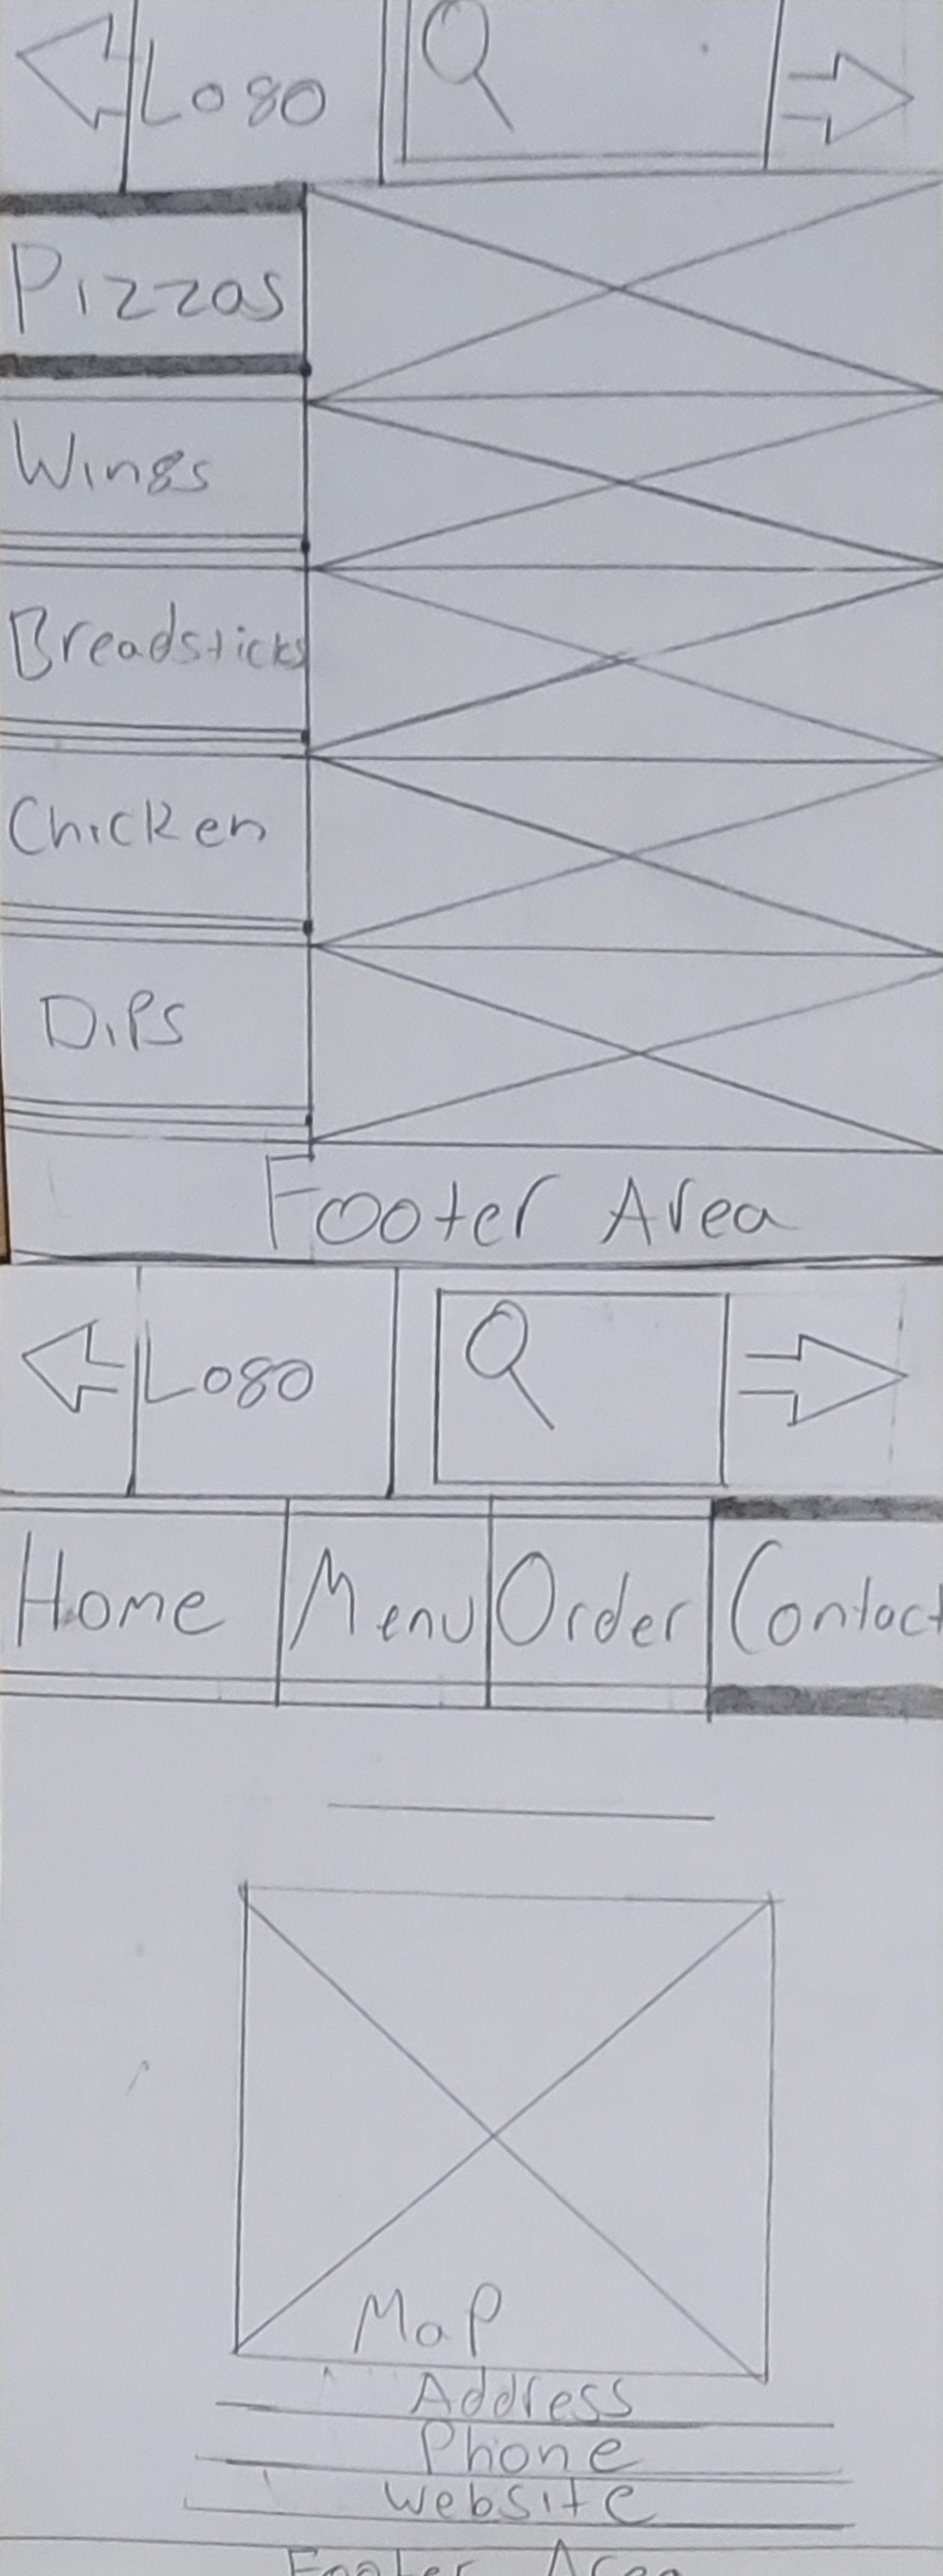 Logo
Pizzas
Wings
Breadsticks
Chicken
Dips
Footer Area
Logo
Home Menu Order Contact
Map
Address
Phone
Website
Footer Area